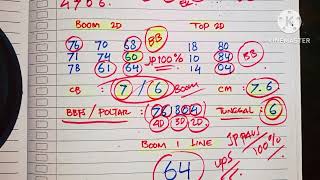 4706.
BOOM 2D TOP 2D
76 70 68 BB 18 80
71 74 60 JP 100% 10 84 BB
78 61 64 14 04
CB : 7 / 6 BOOM CM : 7.6
BBFS / POLTAR : 76804 TUNGGAL : 6
4D 3D 2D
BOOM 1 LINE
64
UPS
JP PAUS
100%
KINEMASTER